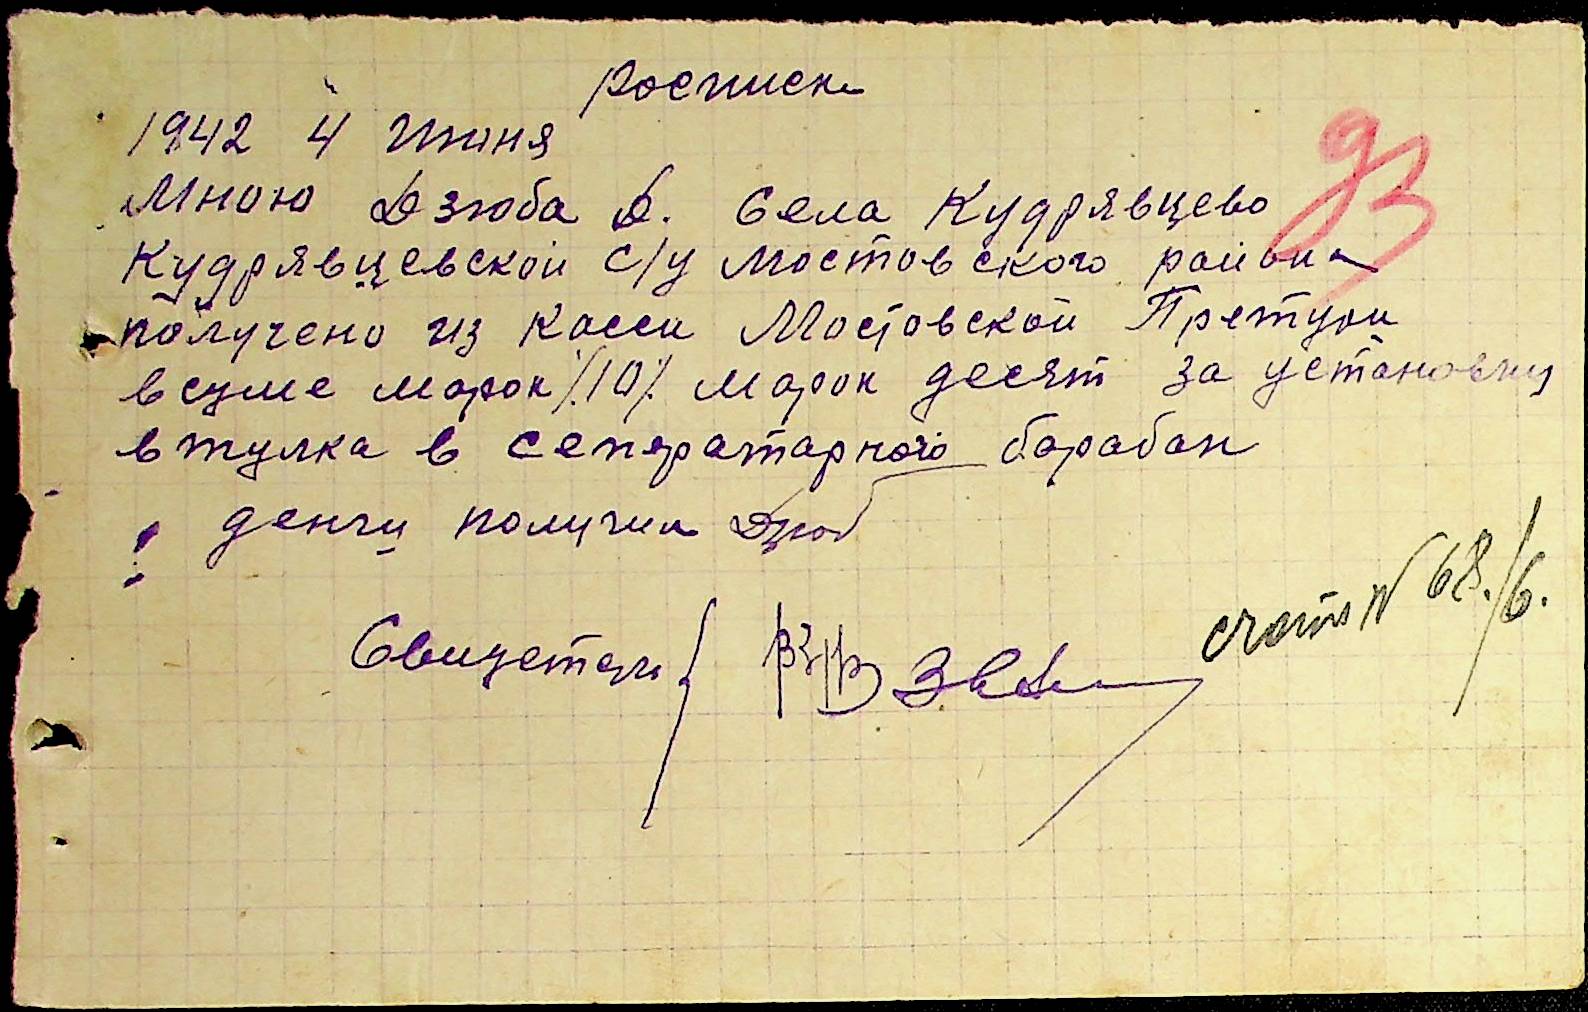 Росписка
1942 4 Июня
Мною Дзюба Д. Села Кудрявцево
Кудрявцевской с/у Мостовского района
получено из Касси Мостовской
в суме марок /10/. марок десят за установку
втулка в сепяратарного барабан
денги получил Дзюб
Свидетели
счет N 68./6.